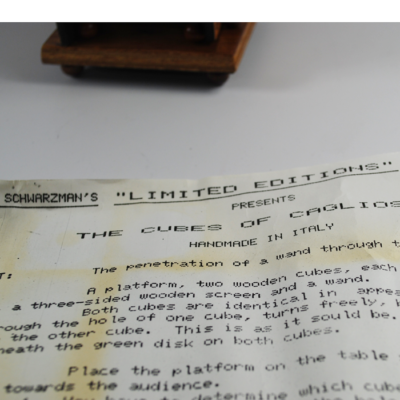 SCHWARZMAN'S "LIMITED EDITIONS"
PRESENTS
THE CUBES OF CAGLIOS
HANDMADE IN ITALY
T: The penetration of a wand through t
A platform, two wooden cubes, each
a three-sided wooden screen and a wand.
Both cubes are identical in appea
rough the hole of one cube, turns freely,
the other cube. This is as it sould be.
neath the green disk on both cubes.
Place the platform on the table
towards the audience.
determine which cube